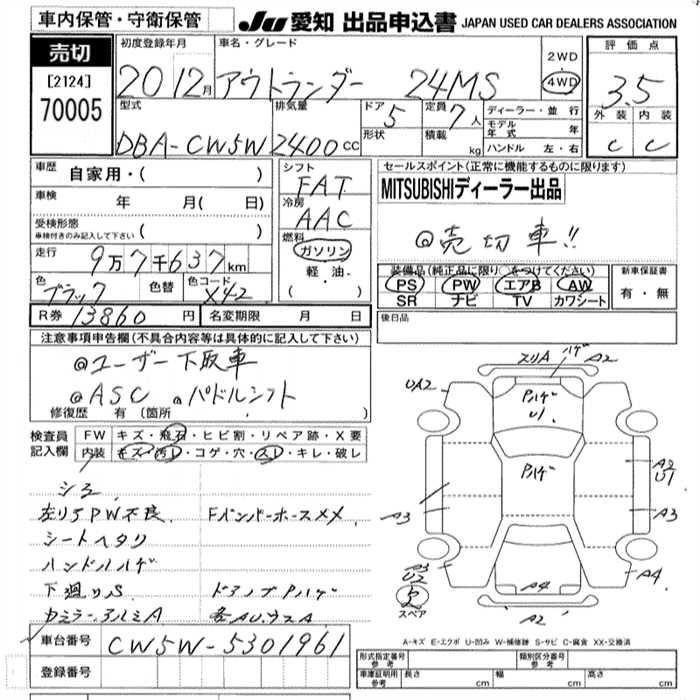 車内保管・守衛保管
JU 愛知 出品申込書 JAPAN USED CAR DEALERS ASSOCIATION
売切
[2124]
70005
初度登録年月
20 12月
車名・グレード
アウトランダー 24MS
2WD
4WD
評価点
3.5
外装 内装
C C
型式
DBA-CW5W
排気量
2400cc
ドア 5
形状
定員 7人
積載 kg
ディーラー・並行
モデル年式 年
ハンドル 左・右
車歴 自家用・( )
車検 年 月( 日)
受検形態
車検付きのみ記入して下さい ( )
走行 9万7千637km
色 ブラック 色替 色コード X42
R券 13860円 名変期限 月 日
シフト
FAT
冷房
AAC
燃料
ガソリン
軽油・
( )
セールスポイント(正常に機能するものに限ります)
MITSUBISHIディーラー出品
@売切車!!
装備品(純正品に限り○をつけてください)
PS PW エアB AW
SR ナビ TV カワシート
新車保証書
有・無
後日品
注意事項申告欄(不具合内容等は具体的に記入して下さい)
@ユーザー下取車
@ASC @パドルシフト
修復歴 有 [箇所 ]
検査員記入欄
FW キズ・飛石・ヒビ割・リペア跡・X要
内装 キズ・汚レ・コゲ・穴・スレ・キレ・破レ
シミ
左リアPW不良 Fバンパーホースメメ
シートヘタリ
ハンドルハゲ
下廻りS ドアノブPハゲ
カミラーアルミA 各AUウスA
スリA ハゲ A2
UA2
Pハゲ
U1
Pハゲ
A2
U1
A3
A3
A3
U2
A4
A4
A2
欠
スペア
A-キズ E-エクボ U-凹み W-補修跡 S-サビ C-腐食 XX-交換済
車台番号 CW5W-5301961
登録番号
形式指定番号 参考
類別区分番号 参考
車庫証明用 参考 長さ cm 幅 cm 高さ cm